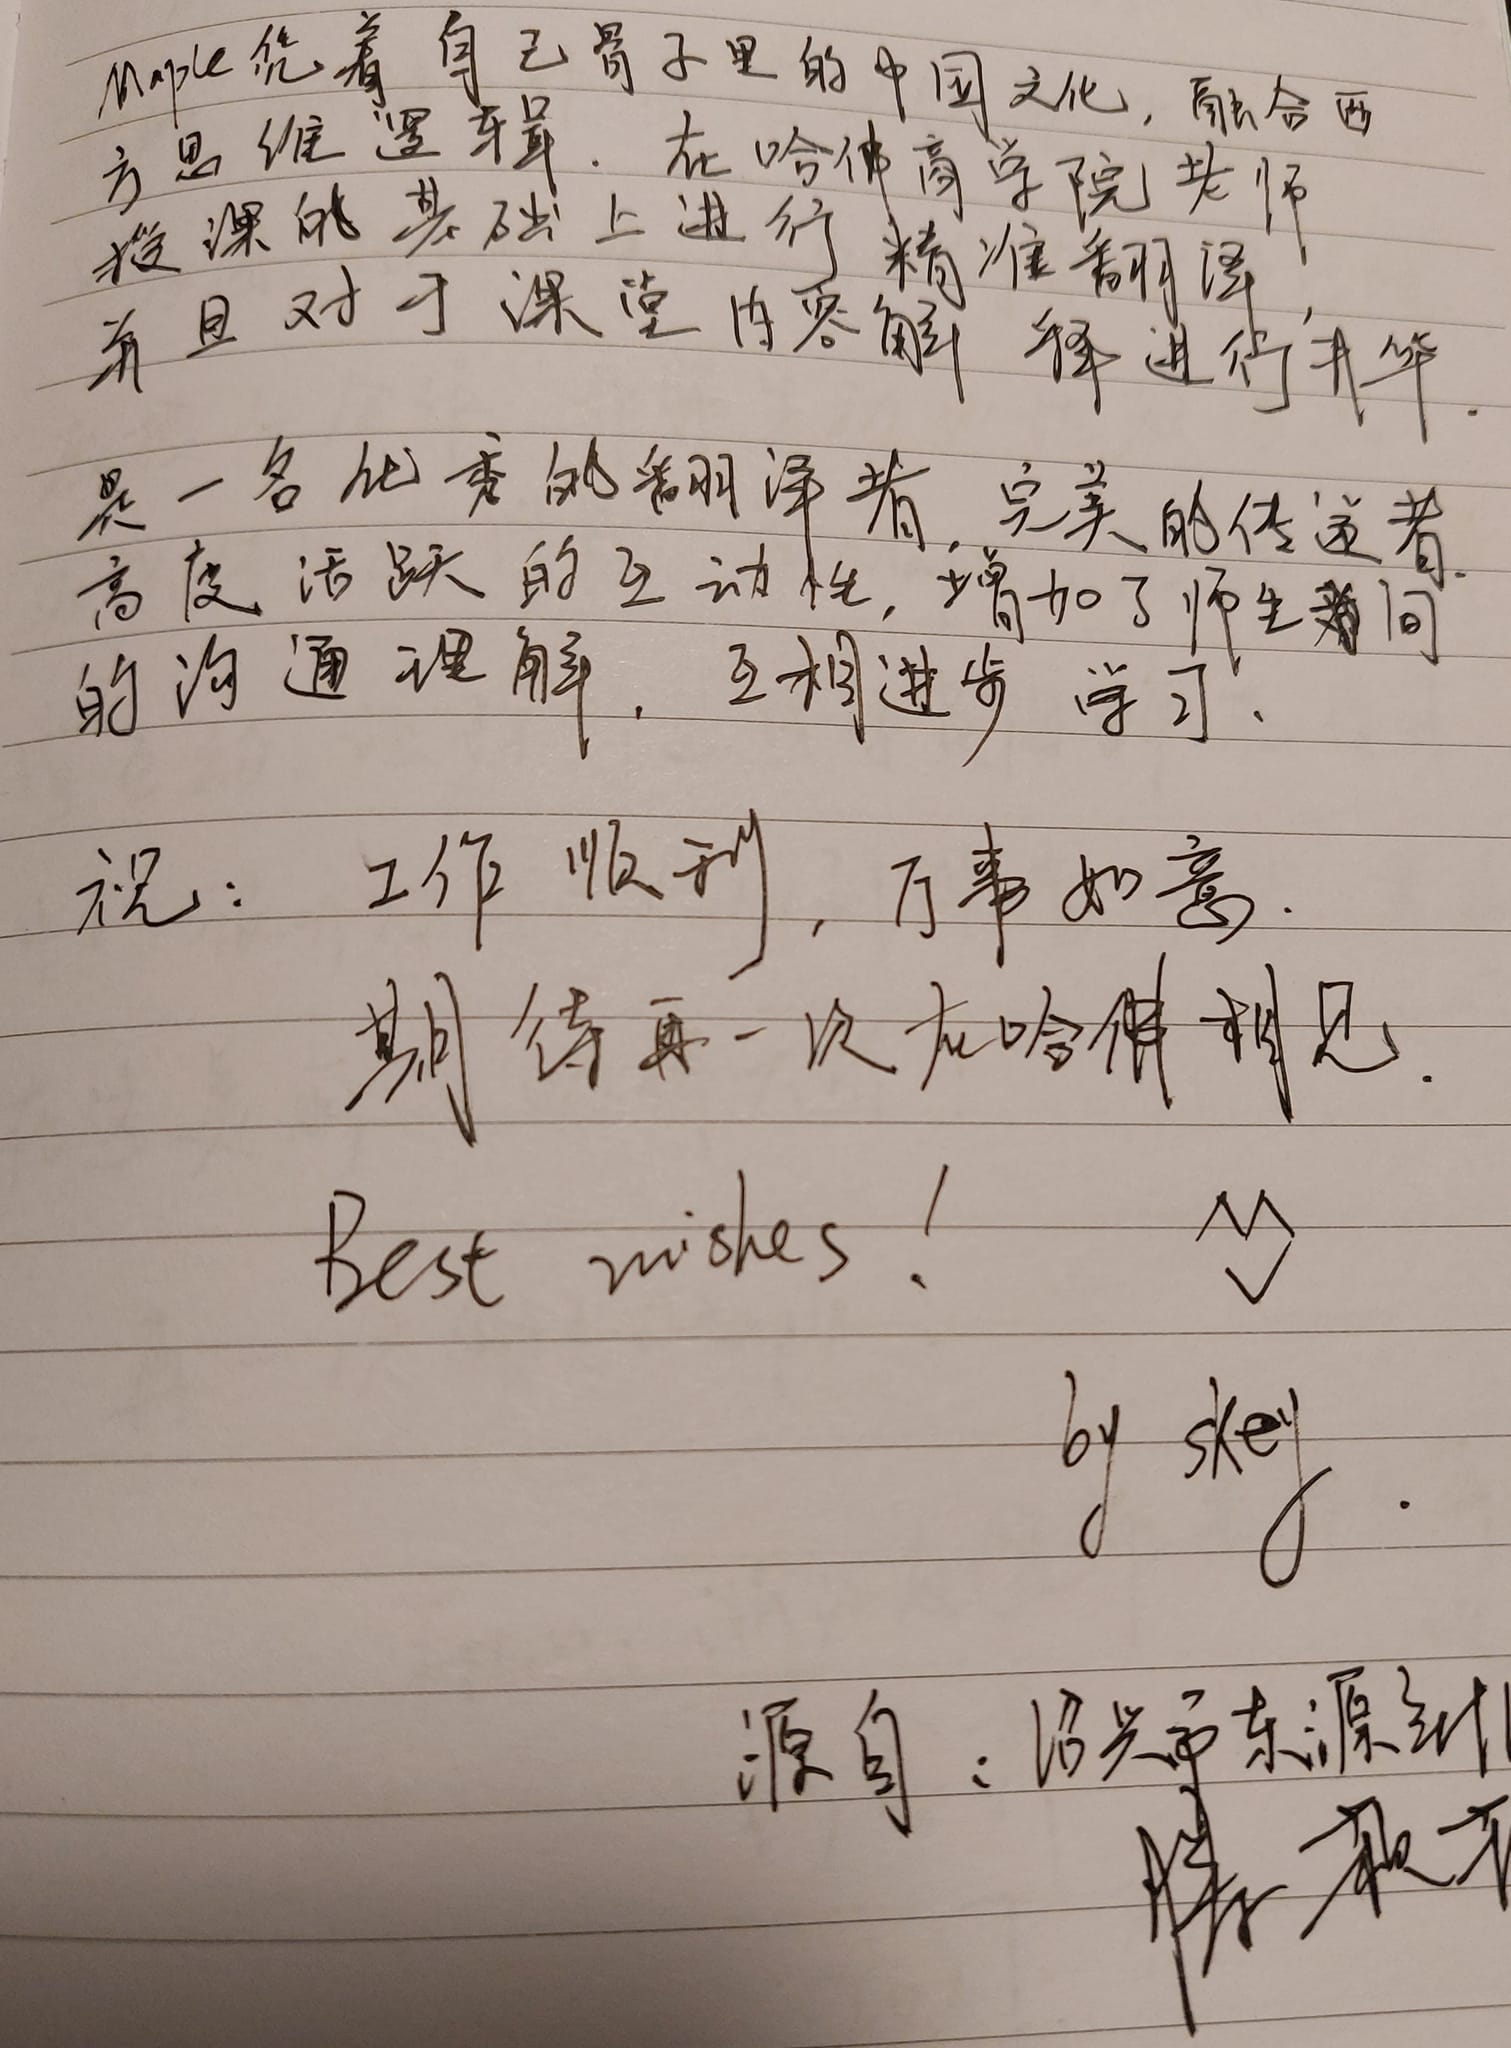 Maple凭着自己骨子里的中国文化，融合西
方思维逻辑．在哈佛商学院老师
授课的基础上进行精准翻译，
并且对于课堂内容解释进行升华．
是一名优秀的翻译者，完美的传递者．
高度活跃的互动性，增加了师生间
的沟通理解，互相进步学习．
祝：工作顺利，万事如意．
期待再一次在哈佛相见．
Best wishes!
by skey.
源自：绍兴市东源